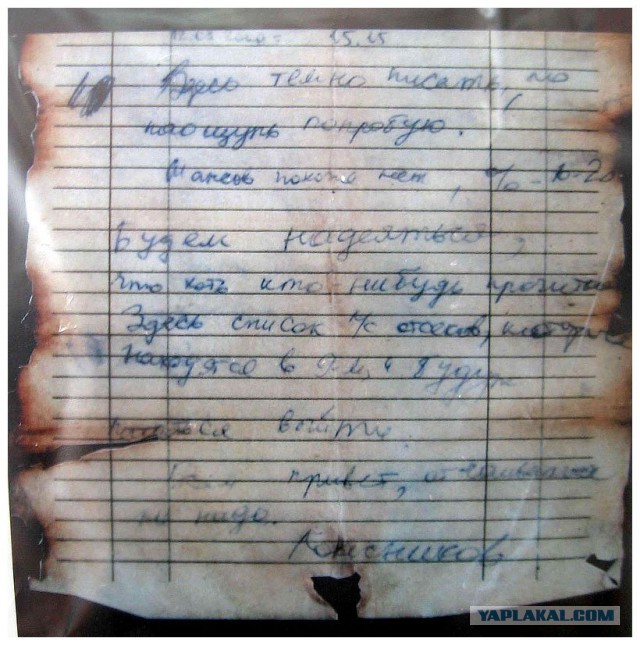 15.15
Здесь темно писать, но
наощупь попробую.
Шансов похоже нет, % - 10-20
Будем надеяться,
что хоть кто-нибудь прочитает
Здесь список л/с отсеков, которые
находятся в 9-м и будут
пытаться выйти.
Всем привет, отчаиваться
не надо.
Колесников
YAPLAKAL.COM